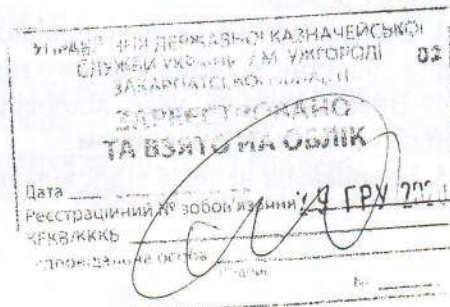 УПРАВЛІННЯ ДЕРЖАВНОЇ КАЗНАЧЕЙСЬКОЇ
СЛУЖБИ УКРАЇНИ У М. УЖГОРОДІ 02
ЗАКАРПАТСЬКОЇ ОБЛАСТІ
ЗАРЕЄСТРОВАНО
ТА ВЗЯТО НА ОБЛІК
Дата
Реєстраційний № зобов'язання 29 ГРУ 2020
КЕКВ/ККК
Відповідальна особа
№